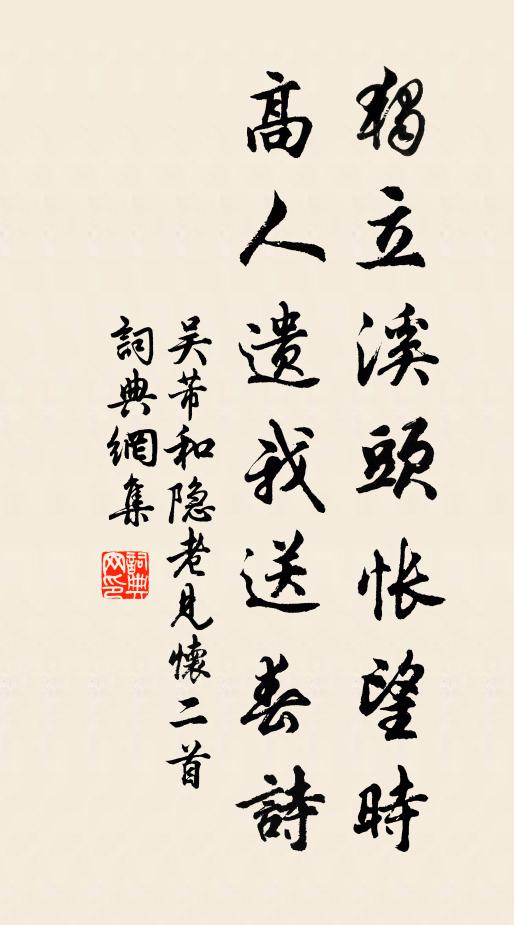 獨立溪頭悵望時
高人遺我送春詩
吴芾和隐老見懷二首
詞典網集
詞典網印